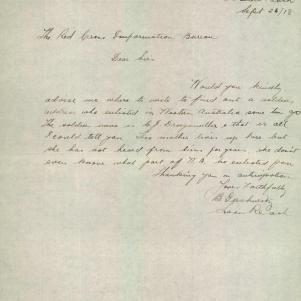 Sept 26/18
The Red Cross Information Bureau
Dear Sir.
Would you kindly
advise me where to write to find out a soldiers
address who enlisted in Western Australia some time ago
The soldiers name is C. J. & that is all
I could tell you. His mother lives up here but
she has not heard from him for years. she don't
even know what part of W.A. he enlisted from
Thanking you in anticipation
Yours Faithfully
B.